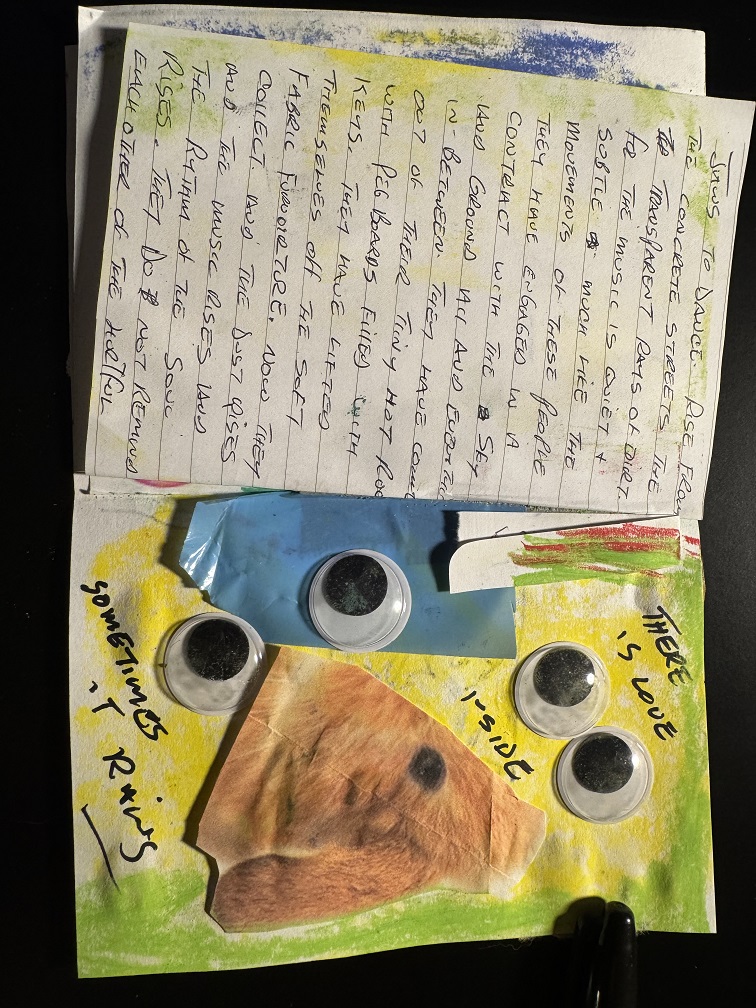 TO DANCE. RISE FROM
THE CONCRETE STREETS THE
TRANSPARENT RAYS OF DIRT
TO THE MUSIC IS QUIET +
SUBTLE MUCH LIKE THE
MOVEMENTS OF THESE PEOPLE
THEY HAVE ENGAGED IN A
CONTRACT WITH THE SKY
AND GROUND ALL AND
IN-BETWEEN. THEY HAVE COME
OUT OF THEIR TINY HOT
WITH PEG BOARDS FILLED WITH
KEYS. THEY HAVE LIFTED
THEMSELVES OFF THE SOFT
FABRIC FURNITURE. NOW THEY
COLLECT AND THE DUST RISES
AND THE MUSIC RISES AND
THE RYTHM OF THE SOUL
RISES. THEY DO NOT REMIND
EACHOTHER OF THE HURTFUL
THERE
IS LOVE
INSIDE
SOMETIMES
IT RAINS